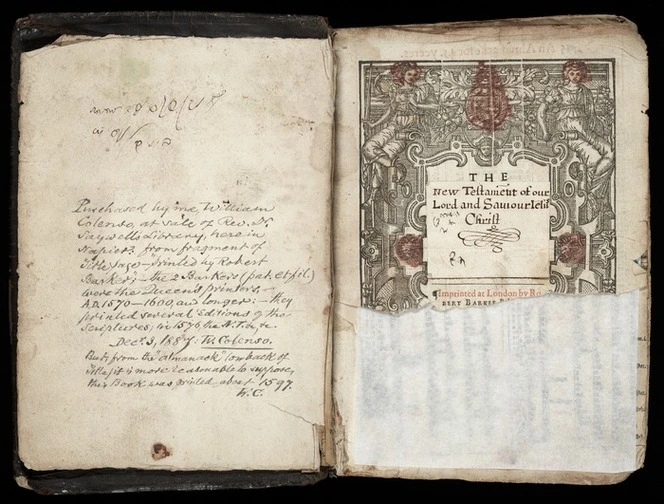 Purchased by me, William
Colenso, at sale of Rev. Dr.
Saywell's library, here in
Napier: from fragment of
Title page—printed by Robert
Barker;—the 2 Barkers (pat. et fil.)
were the Queen's printers,—
A.D. 1570–1600, and longer:—they
printed several Editions of the
Scriptures; in 1576 the N.T. &c.
Decr. 3, 1887: W. Colenso.
But, from the almanack (on back of
title,) it is more reasonable to suppose,
this Book was printed about 1597.
W.C.
THE
New Testament of our
Lord and Sauiour Iesus
Christ
Imprinted at London by Ro-
BERT BARKER